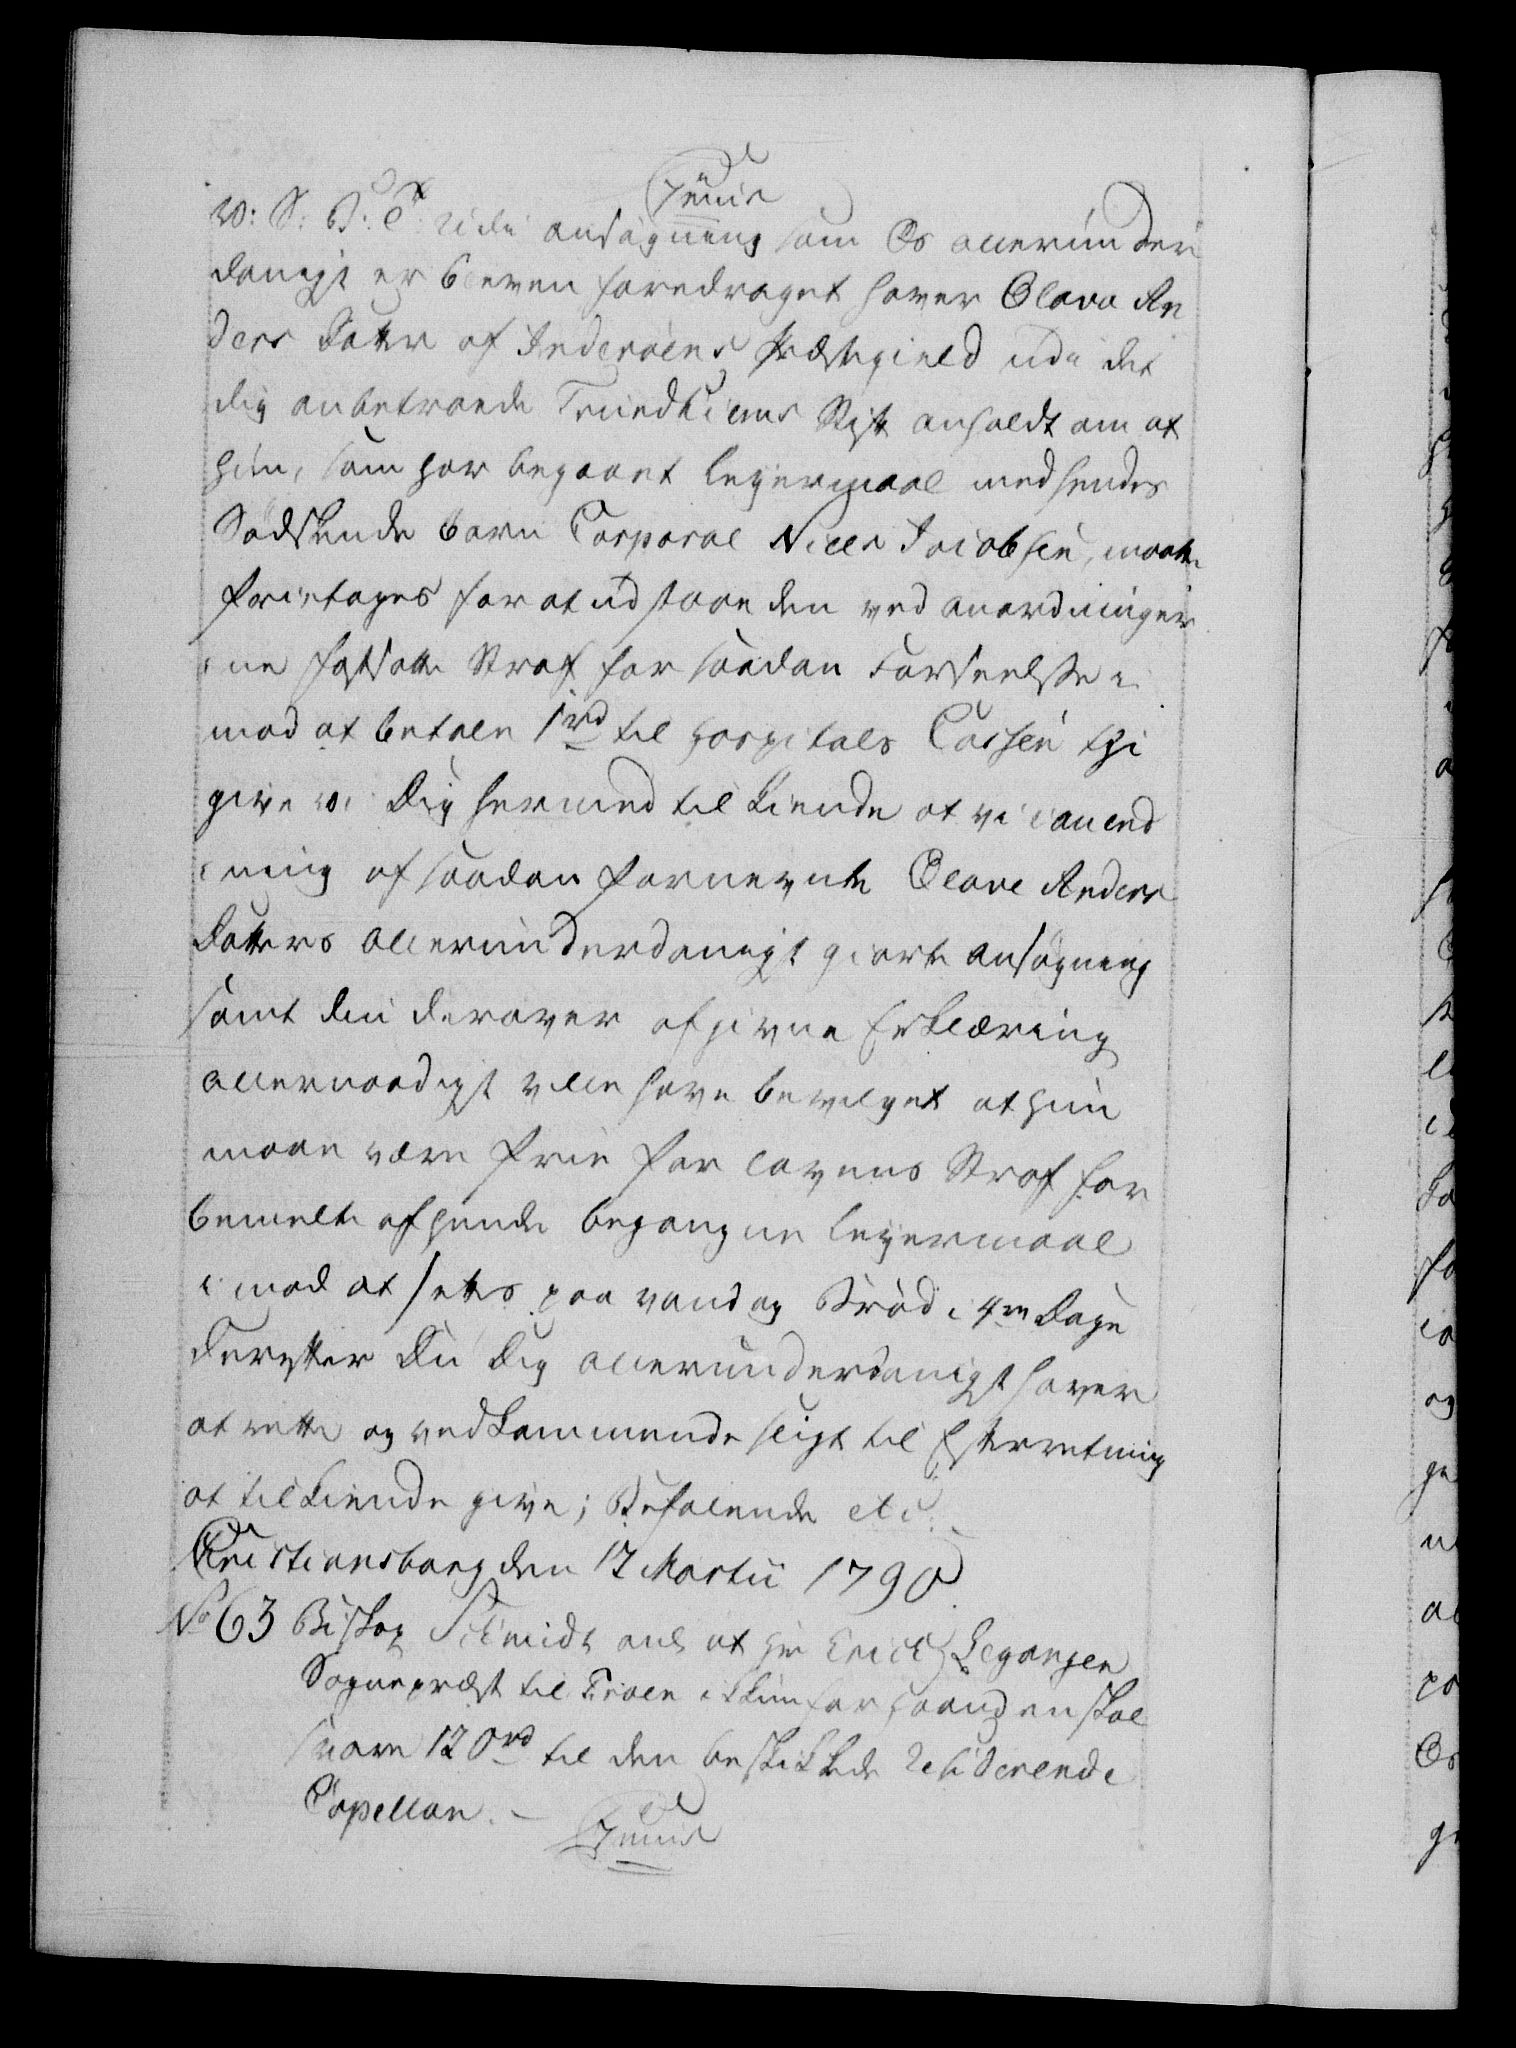 Genis
W: S: B: T: Udi ansøgning som Os allerunder
danigst er bleven foredraget haver Olava An
ders Datter af Inderøens Præstegield udi det
dig anbetroede Trundhiems Stift anholdt om at
hun, som har begaaet leyermaal med hendes
Sødskende barn Corporal Niels Jacobsen, maatte
fritages for at udstaae den ved anordninger
ne fastsatte Straf for saadan Forseelse i
mod at betale 1 rd til Hospitals Cassen thi
give vi Dig hermed til kiende at vi i anled
ning af saadan fornevnte Olave Anders
Datters allerunderdanigst giorte ansøgning
samt din derover afgivne Erklæring
allernaadigst ville have bevilget at hun
maae være frie for lovens Straf for
bemelte af hende begangne leyermaal
imod at settes paa vand og Brød i 4re Dage
Derefter Du Dig allerunderdanigst haver
at rette og vedkommende sligt til Efterretning
at tilkiendegive; Befalende etc.
Christiansborg den 17 Martii 1790.
No 63 Biskop Schmidt anl at Hr Erich
Sognepræst til
svare 120 rd til den beskikkede residerende
Capellan. –
Genis